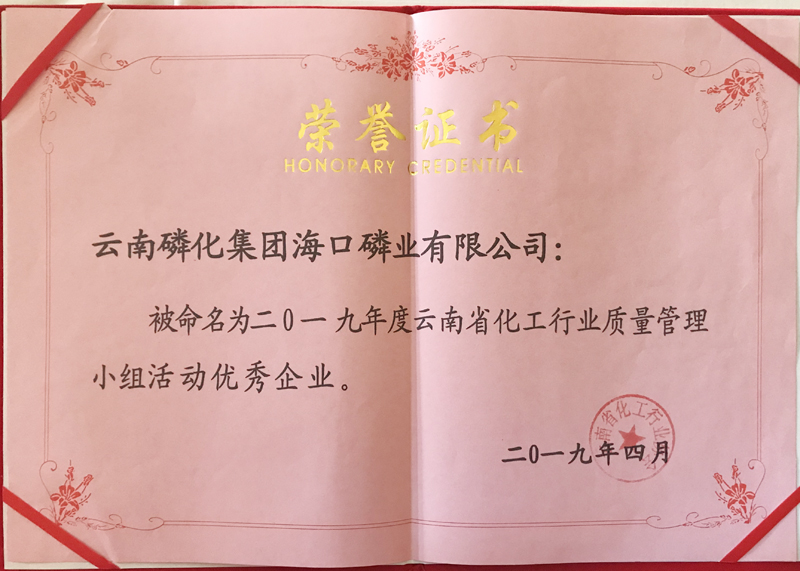 荣誉证书
HONORARY CREDENTIAL
云南磷化集团海口磷业有限公司：
被命名为二0一九年度云南省化工行业质量管理
小组活动优秀企业。
南省化工行业
二0一九年四月